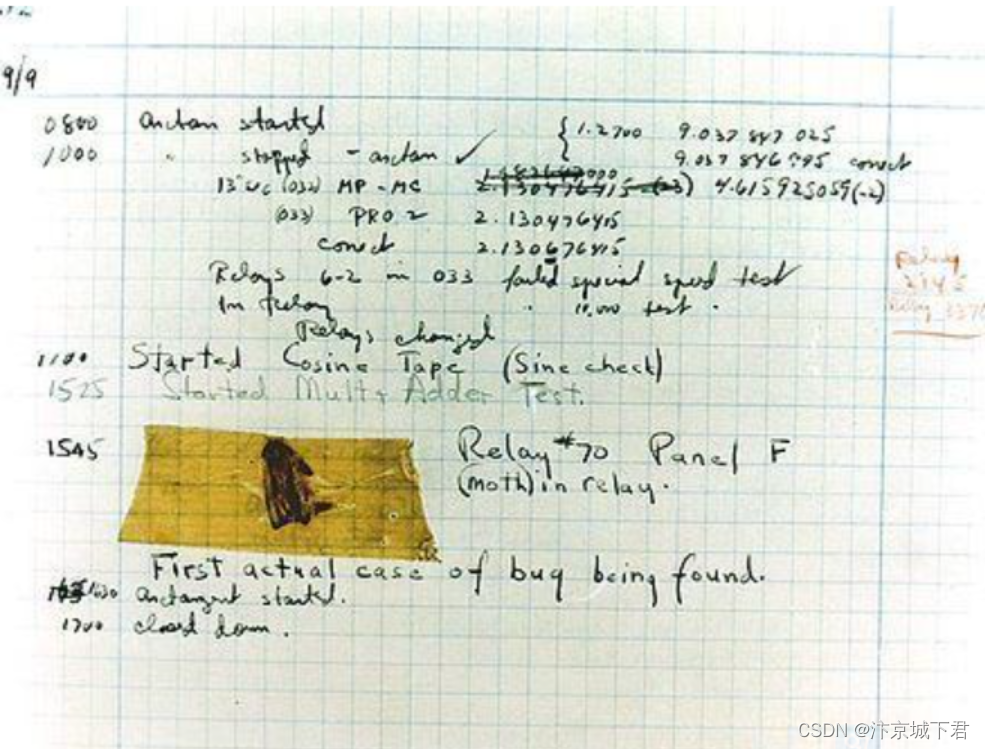 9/9
0800 arctan started { 1.2700 9.037 847 025
1000 " stopped - arctan ✓ 9.037 846 795 correct
13"uc (032) MP - MC 2.130476415 (-3) 4.615925059(-2)
(033) PRO 2 2.130476415
correct 2.130676415
Relays 6-2 in 033 failed special speed test
In Relay " 10.000 test .
Relay
2145
Relay 3370
Relays changed
1100 Started Cosine Tape (Sine check)
1525 Started Mult + Adder Test.
1545 Relay #70 Panel F
(moth) in relay.
First actual case of bug being found.
1630 arctangent started.
1700 closed down.
CSDN @汴京城下君